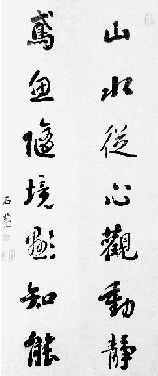 山水從心觀動靜
鳶魚 境 知能
石庵